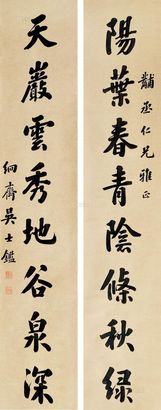 陽葉春青陰條秋緑
黼丞仁兄雅正
天巖雲秀地谷泉深
絅齋吳士鑑